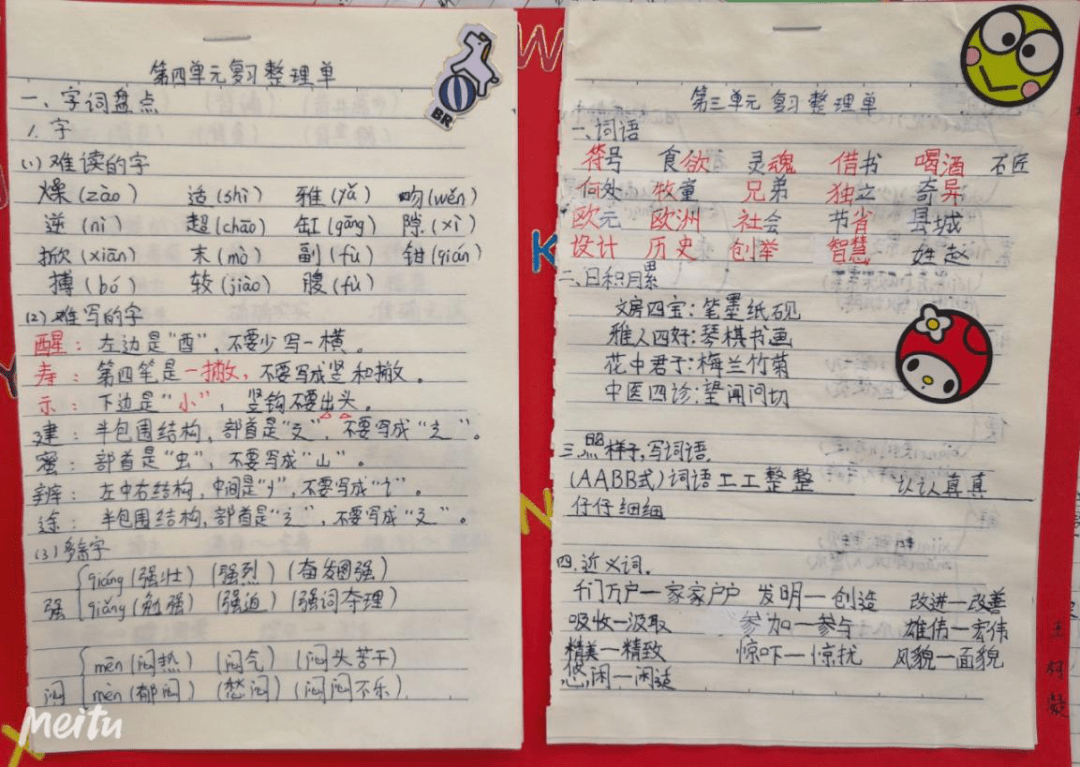 第四单元复习整理单
一、字词盘点
1. 字
(1) 难读的字
燥(zào) 适(shì) 雅(yǎ) 吻(wěn)
逆(nì) 超(chāo) 缸(gāng) 隙(xì)
掀(xiān) 末(mò) 副(fù) 钳(qián)
搏(bó) 较(jiào) 腹(fù)
(2) 难写的字
醒：左边是“酉”，不要少写一横。
寿：第四笔是一撇，不要写成竖和撇。
示：下边是“小”，竖钩不要出头。
建：半包围结构，部首是“廴”，不要写成“辶”。
蜜：部首是“虫”，不要写成“山”。
辨：左中右结构，中间是“丿”，不要写成“讠”。
途：半包围结构，部首是“辶”，不要写成“廴”。
(3) 多音字
强
qiáng (强壮) (强烈) (奋发图强)
qiǎng (勉强) (强迫) (强词夺理)
闷
mēn (闷热) (闷气) (闷头苦干)
mèn (郁闷) (愁闷) (闷闷不乐)
BR
Meitu
第三单元复习整理单
一、词语
符号 食欲 灵魂 借书 喝酒 石匠
何处 牧童 兄弟 独立 奇异
欧元 欧洲 社会 节省 县城
设计 历史 创举 智慧 姓赵
二、日积月累
文房四宝：笔墨纸砚
雅人四好：琴棋书画
花中君子：梅兰竹菊
中医四诊：望闻问切
三.照样子,写词语
(AABB式)词语工工整整 认认真真
仔仔细细
四.近义词。
千门万户—家家户户 发明—创造 改进—改善
吸收—汲取 参加—参与 雄伟—宏伟
精美—精致 惊吓—惊扰 风貌—面貌
悠闲—闲适
W
K
N
Y
X